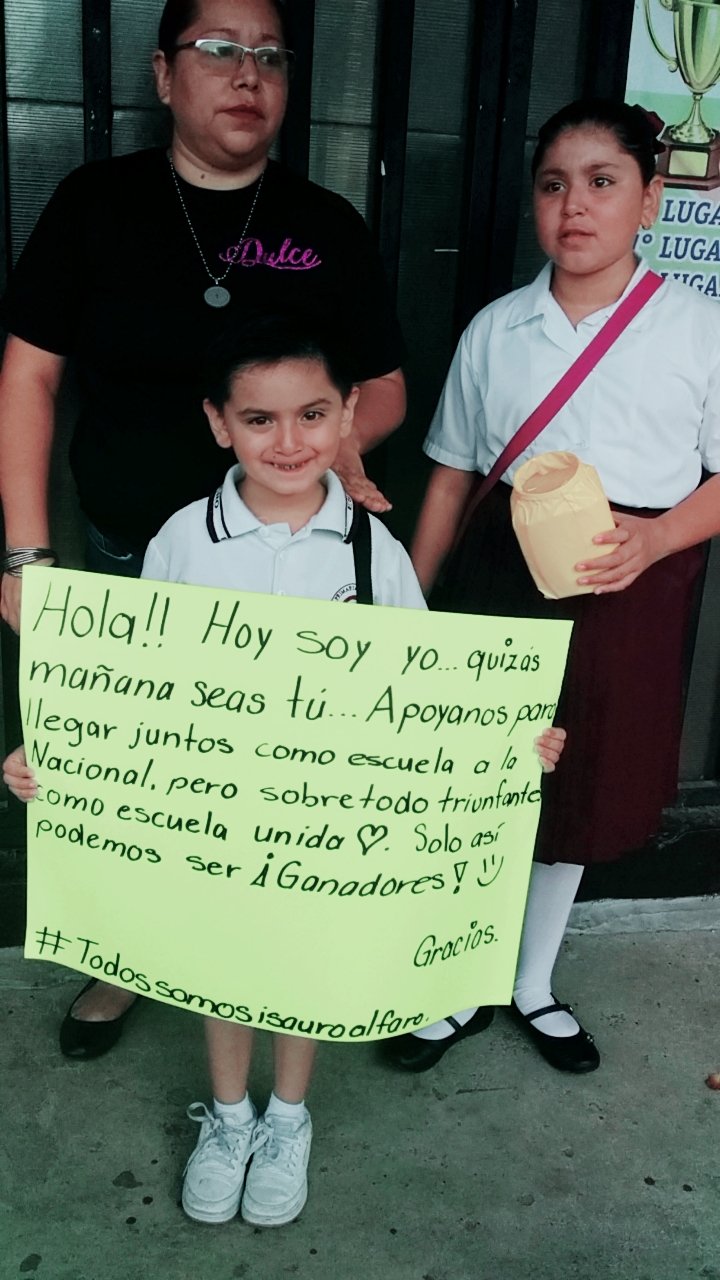 Dulce
LUGA
1° LUGA
LUGA
Hola!! Hoy soy yo... quizás
mañana seas tú... Apoyanos para
llegar juntos como escuela a la
Nacional, pero sobre todo triunfante
como escuela unida ♡. Solo así
podemos ser ¡Ganadores!
Gracias.
#Todossomosisauroalfaro.